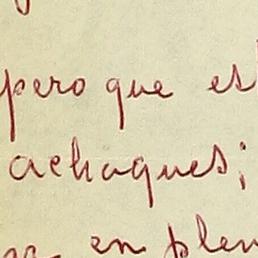 pero que es
achaques;
en plen